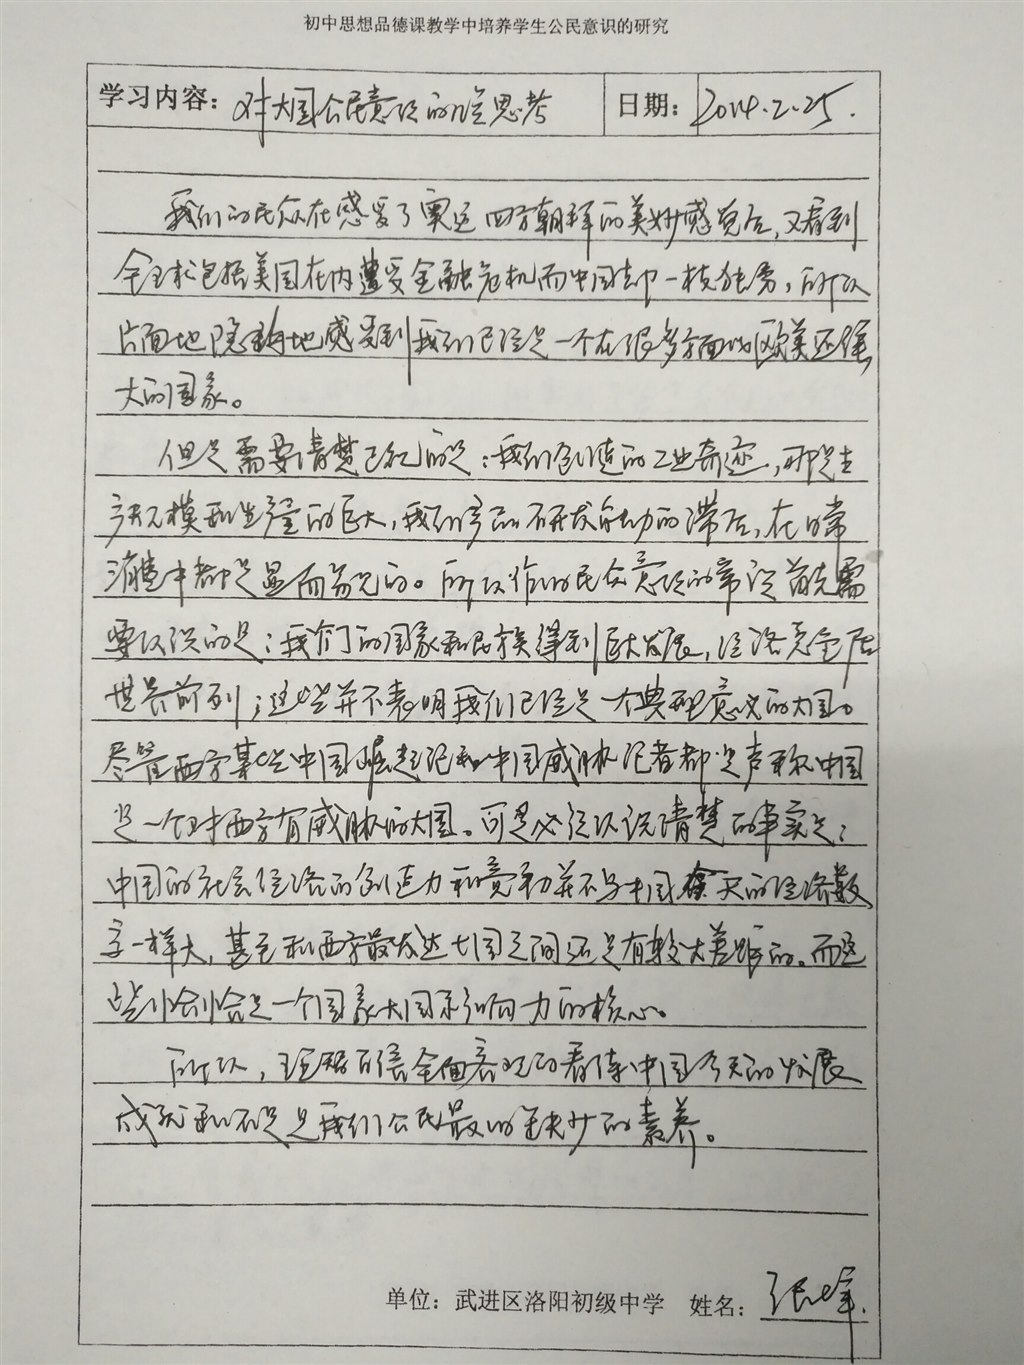 初中思想品德课教学中培养学生公民意识的研究
学习内容：对大国公民意识的思考 日期：2014.2.25.
我们的民众在感受了奥运四方朝拜的美妙感觉后，又看到
全球包括美国在内遭受金融危机而中国却一枝独秀，所以
片面地隐约地感受到我们已经是一个在很多方面比欧美还强
大的国家。
但是需要清楚已知的是：我们创造的工业奇迹，那只是生
产规模和生产量的巨大，我们产品研发能力的滞后，在日常
消费中都是显而易见的。所以作为民众意识的常识首先需
要认识的是：我们的国家和民族得到巨大发展，经济总量居
世界前列；这些并不表明我们已经是一个典型意义的大国。
尽管西方某些中国崛起论和中国威胁论者都是声称中国
是一个对西方有威胁的大国。可是必须认识清楚的事实是：
中国的社会经济的创造力和竞争力并不与中国今天的经济数
字一样大，甚至和西方最发达七国之间还是有较大差距的。而这
些恰恰是一个国家大国影响力的核心。
所以，理智而全面客观的看待中国今天的发展
成就和不足是我们公民最为缺少的素养。
单位：武进区洛阳初级中学 姓名：